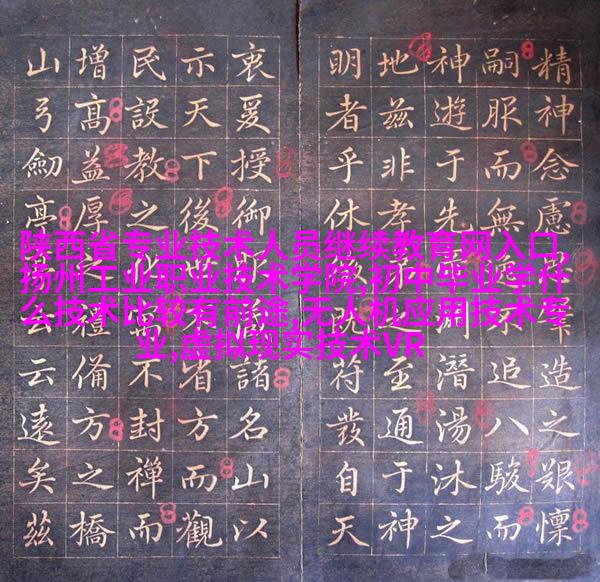 陕西省专业技术人员继续教育网入口,
扬州工业职业技术学院,初中毕业学什
么技术比较有前途,无人机应用技术专
业,虚拟现实技术VR
精神念慮造之艱懍
嗣服而無追八駿而
神遊于先潛湯沐之
地茲非孝至通于神
明者乎休既符發自天
衷爰授御諸名山以
示天下後省方而觀
民設教之不封禪而
增高益厚禮備方之橋
山弓劍亭云云遠矣茲